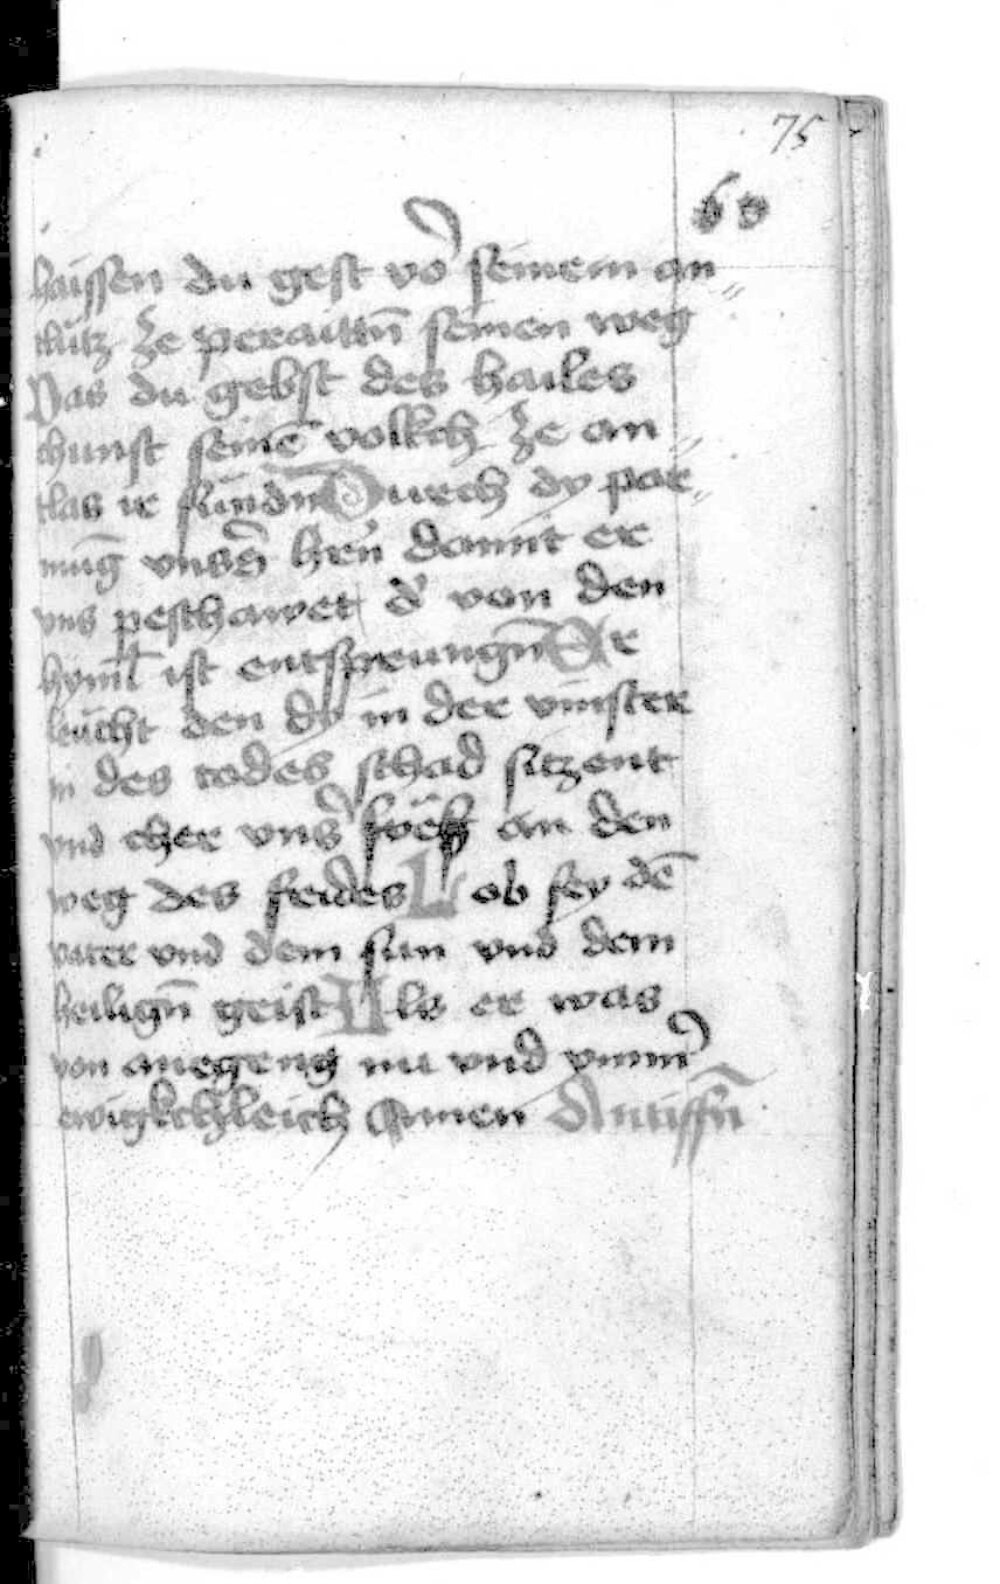 75
haissen du gest vor seinem an„
tlutz ze peraittn̄ seinen weg
Das du gebst des hailes
chunst seinē volkch ze an„
tlas ir sundn̄ Durch dy par„
mūg vnsers̄ hrn̄ damit er
vns peschawet d' von den
hyml̄ ist entsprungn̄ Er
leucht den dy in der vinster
in des todes schad sitzent
vnd cher vnser fuess an den
weg des frides Lob sey dē
vater vnd dem sun vnd dem
heilign̄ geist Als er was
von anegeng nu vnd ymmer
ewigkchleich Amen Antiffn̄